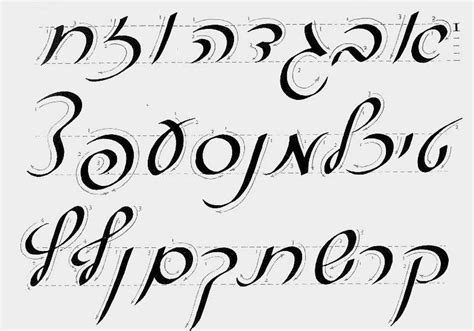 אבגדהוזח
טיכלמנסעפצ
קרשתךםןףץ